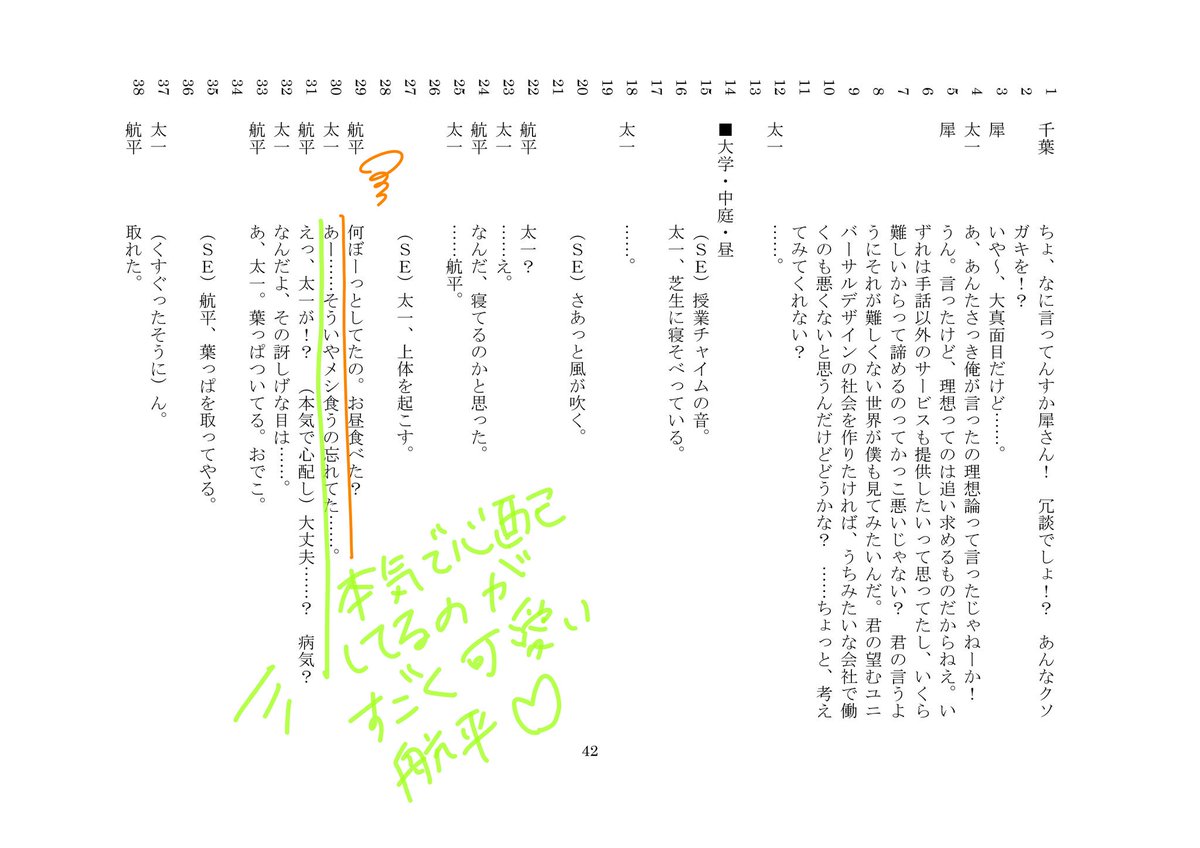 1 千葉 ちょ、なに言ってんすか犀さん！　冗談でしょ！？　あんなクソ
2 ガキを！？
3 犀 いや〜、大真面目だけど……。
4 太一 あ、あんたさっき俺が言ったの理想論って言ったじゃねーか！
5 犀 うん。言ったけど、理想ってのは追い求めるものだからねえ。い
6 ずれは手話以外のサービスも提供したいって思ってたし、いくら
7 難しいからって諦めるのってかっこ悪いじゃない？　君の言うよ
8 うにそれが難しくない世界が僕も見てみたいんだ。君の望むユニ
9 バーサルデザインの社会を作りたければ、うちみたいな会社で働
10 くのも悪くないと思うんだけどどうかな？　……ちょっと、考え
11 てみてくれない？
12 太一 ……。
13
14 ■大学・中庭・昼
15 （ＳＥ）授業チャイムの音。
16 太一、芝生に寝そべっている。
17
18 太一 ……。
19
20 （ＳＥ）さあっと風が吹く。
21
22 航平 太一？
23 太一 ……え。
24 航平 なんだ、寝てるのかと思った。
25 太一 ……航平。
26
27 （ＳＥ）太一、上体を起こす。
28
29 航平 何ぼーっとしてたの。お昼食べた？
30 太一 あー……そういやメシ食うの忘れてた……。
31 航平 えっ、太一が！？　（本気で心配し）大丈夫……？　病気？
32 太一 なんだよ、その訝しげな目は……。
33 航平 あ、太一。葉っぱついてる。おでこ。
34
35 （ＳＥ）航平、葉っぱを取ってやる。
36
37 太一 （くすぐったそうに）ん。
38 航平 取れた。
本気で心配
してるのが
すごく可愛い
航平♡
42